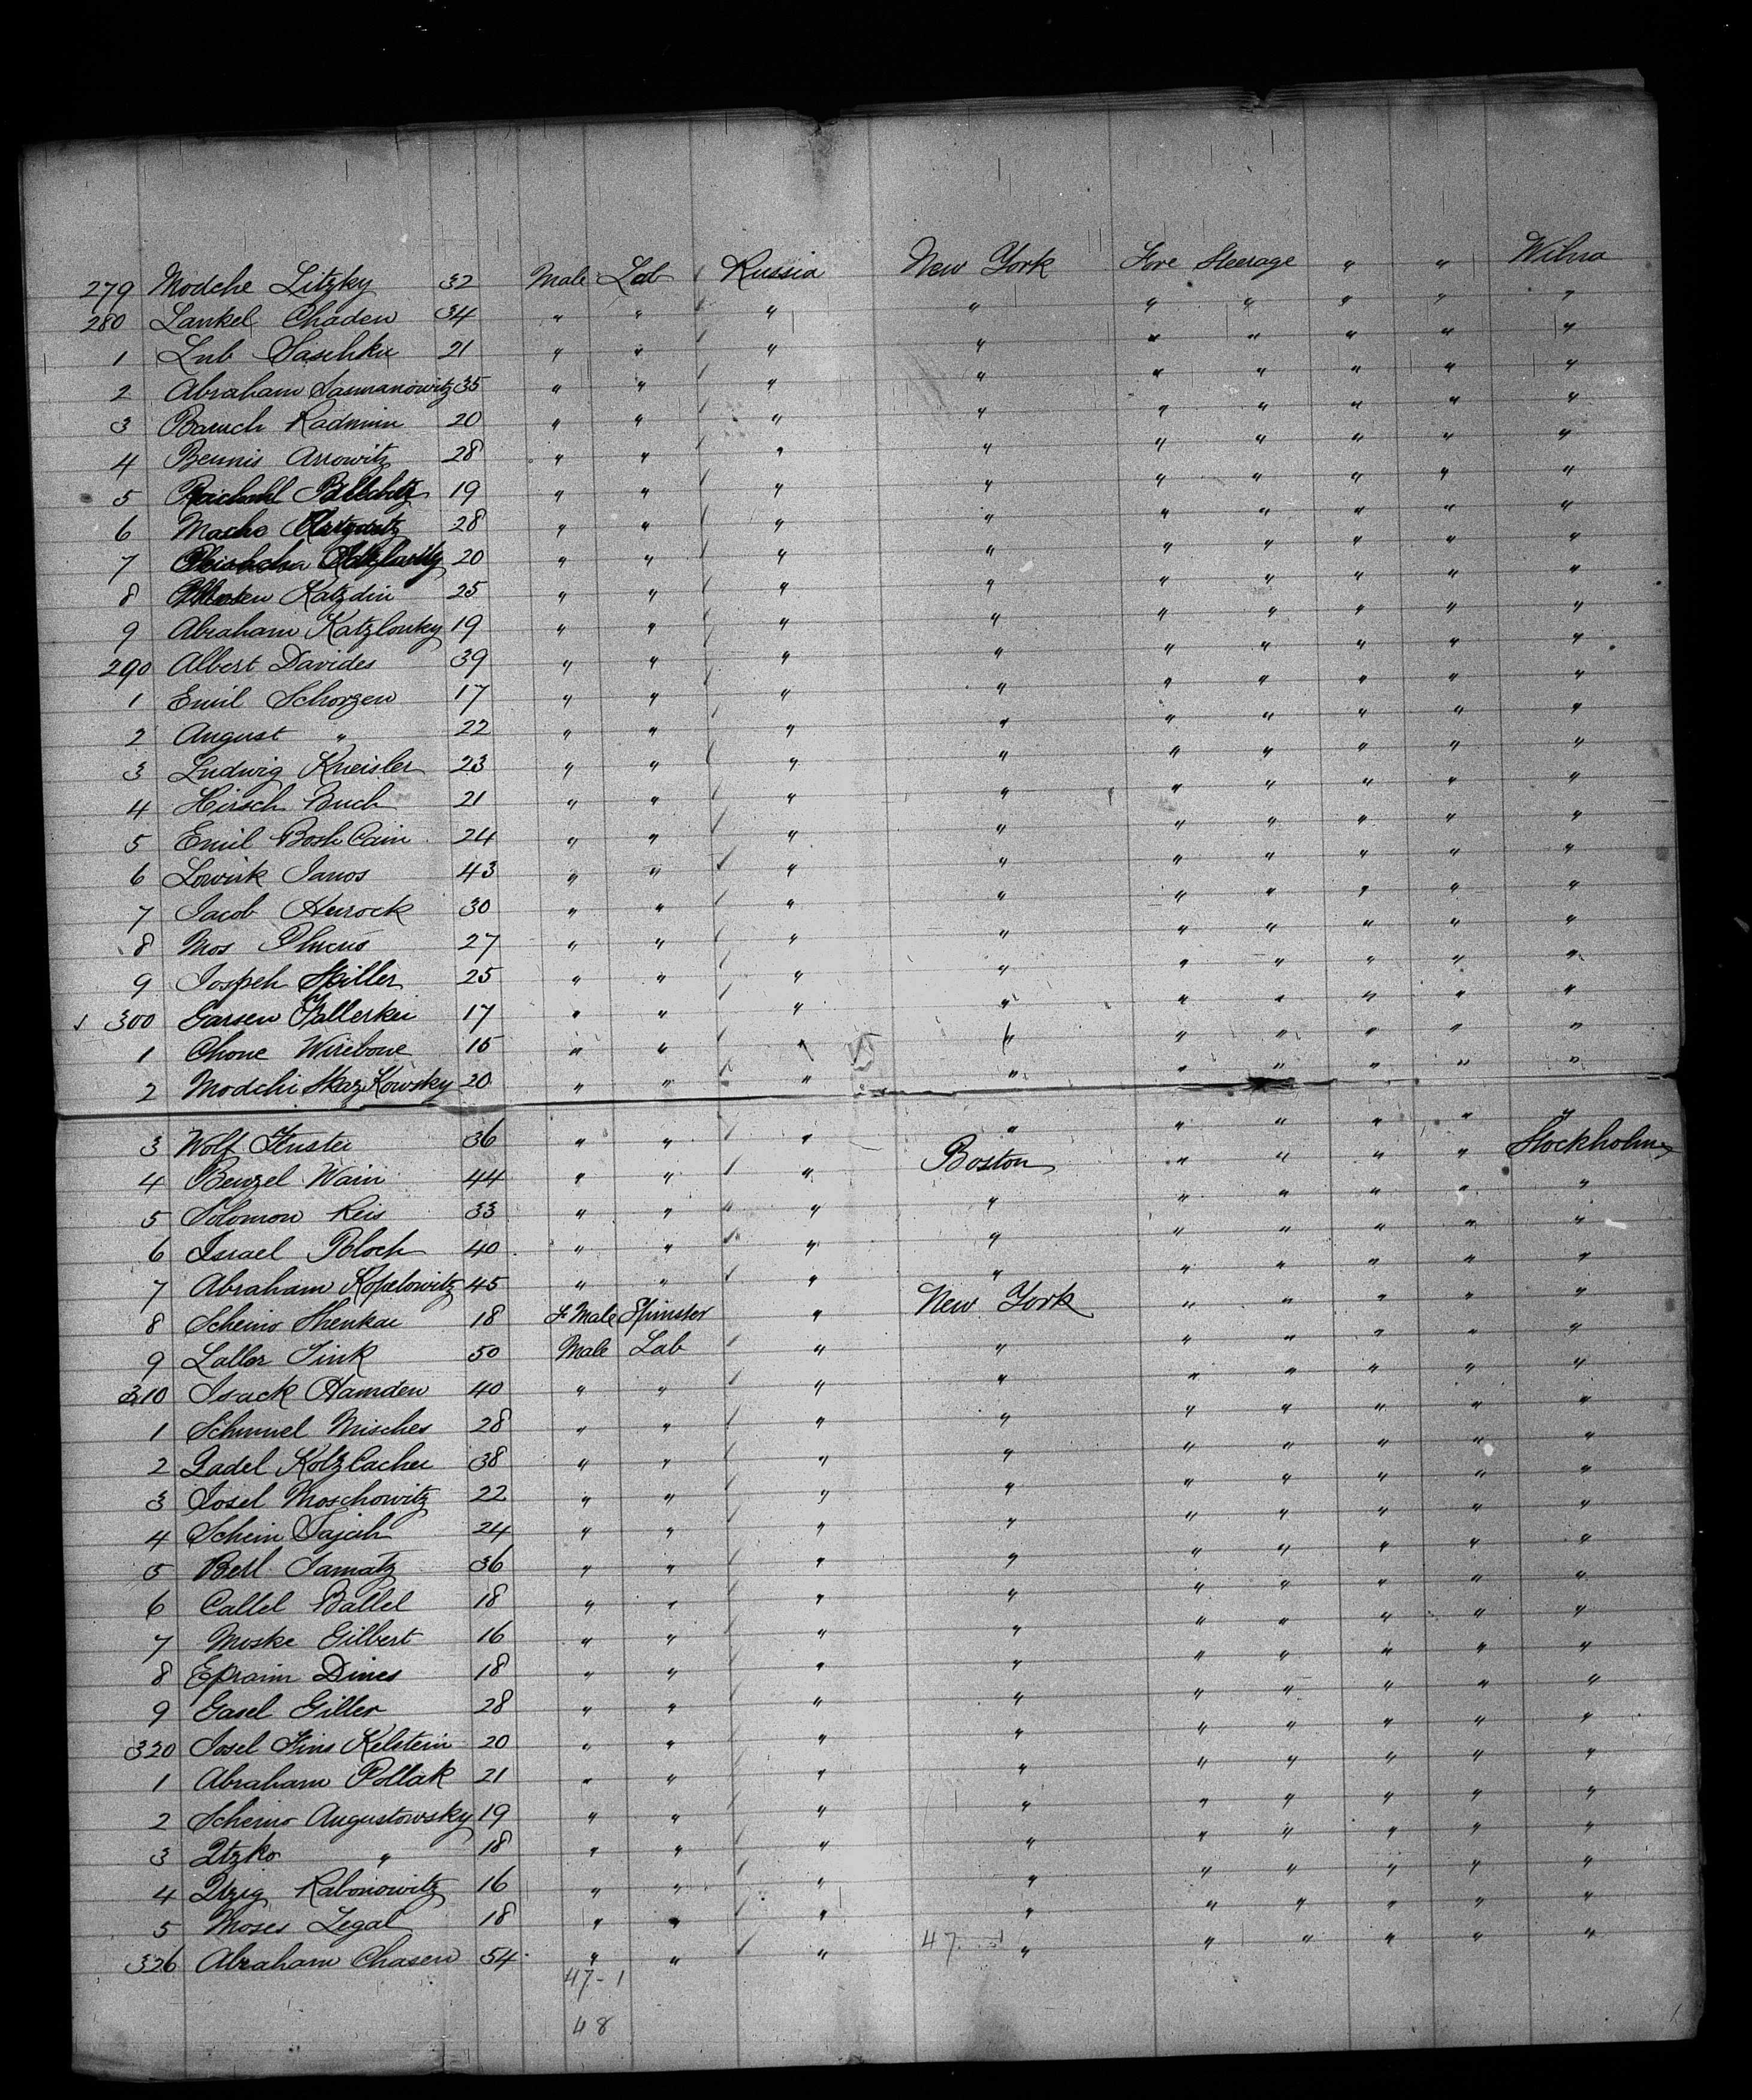 279 Modche Litzky 32 Male Lab Russia New York Fore Steerage " " Wilna
280 Lankel Chaden 34 " " " " " " " " "
1 Lub Saschku 21 " " " " " " " " "
2 Abraham Sasmanowitz 35 " " " " " " " " "
3 Baruch Radmin 20 " " " " " " " " "
4 Bennis Arrowitz 28 " " " " " " " " "
5 19 " " " " " " " " "
6 Masho 28 " " " " " " " " "
7 20 " " " " " " " " "
8 Katzdin 25 " " " " " " " " "
9 Abraham Katzlouky 19 " " " " " " " " "
290 Albert Davides 39 " " " " " " " " "
1 Emil Schorzen 17 " " " " " " " " "
2 August " 22 " " " " " " " " "
3 Ludwig Kneisler 23 " " " " " " " " "
4 Hirsch Buch 21 " " " " " " " " "
5 Emil Bosh Cain 24 " " " " " " " " "
6 Lowick Janos 43 " " " " " " " " "
7 Jacob Heirock 30 " " " " " " " " "
8 Mos 27 " " " " " " " " "
9 Jospeh Hiller 25 " " " " " " " " "
300 Garsen 17 " " " " " " " " "
1 Chone Wirebone 15 " " " " " " " " "
2 Modchi SkazKowsky 20 " " " " " " " " "
3 Wolf Fuster 36 " " " " " " " " "
4 Benzel Wain 44 " " " Boston " " " " Stockholm
5 Solomon Reis 33 " " " " " " " " "
6 Israel Bloch 40 " " " " " " " " "
7 Abraham Kopelowitz 45 " " " " " " " " "
8 Scheino Shenkai 18 F Male Spinster " New York " " " " "
9 Laller Fink 50 Male Lab " " " " " " "
310 Isack Hamden 40 " " " " " " " " "
1 Schmuel Misches 28 " " " " " " " " "
2 Ladel Kolzlacher 38 " " " " " " " " "
3 Josel Moschowitz 22 " " " " " " " " "
4 Schein Sajah 24 " " " " " " " " "
5 Berl Samatz 36 " " " " " " " " "
6 Callel Ballel 18 " " " " " " " " "
7 Moske Gilbert 16 " " " " " " " " "
8 Epraim Dines 18 " " " " " " " " "
9 Gasel Giller 28 " " " " " " " " "
320 Josel Fins Kelstein 20 " " " " " " " " "
1 Abraham Pollak 21 " " " " " " " " "
2 Scheino Augustowsky 19 " " " " " " " " "
3 Itzko " 18 " " " " " " " " "
4 Itzig Rabonowitz 16 " " " " " " " " "
5 Moses Legal 18 " " " " " " " " "
326 Abraham Chasen 54 " " " " " " " " "
47-1 47
48